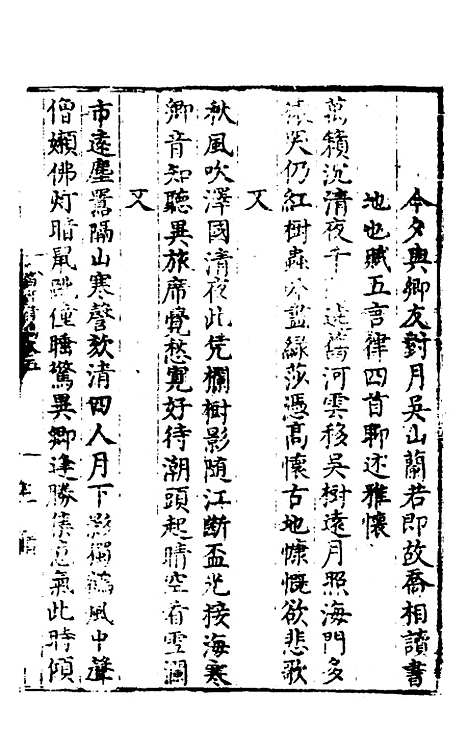 今夕與卿友對月吳山蘭若即故喬相讀書
地也賦五言律四首聊述雅懷
萬籟沉清夜千 迷舊河雲移吳樹遠月照海門多
猿哭仍紅樹蟲吟盡綠莎憑高懷古地慷慨欲悲歌
又
秋風吹澤國清夜此凭欄樹影随江斷盃光接海寒
鄉音知聽異旅席覺愁寬好待潮頭起晴空看雪瀾
又
市遠塵囂隔山寒聲欬清四人月下影獨鶴風中聲
僧嬾佛灯暗鼠跳僮睡驚異鄉逢勝集意氣此時傾
卷五